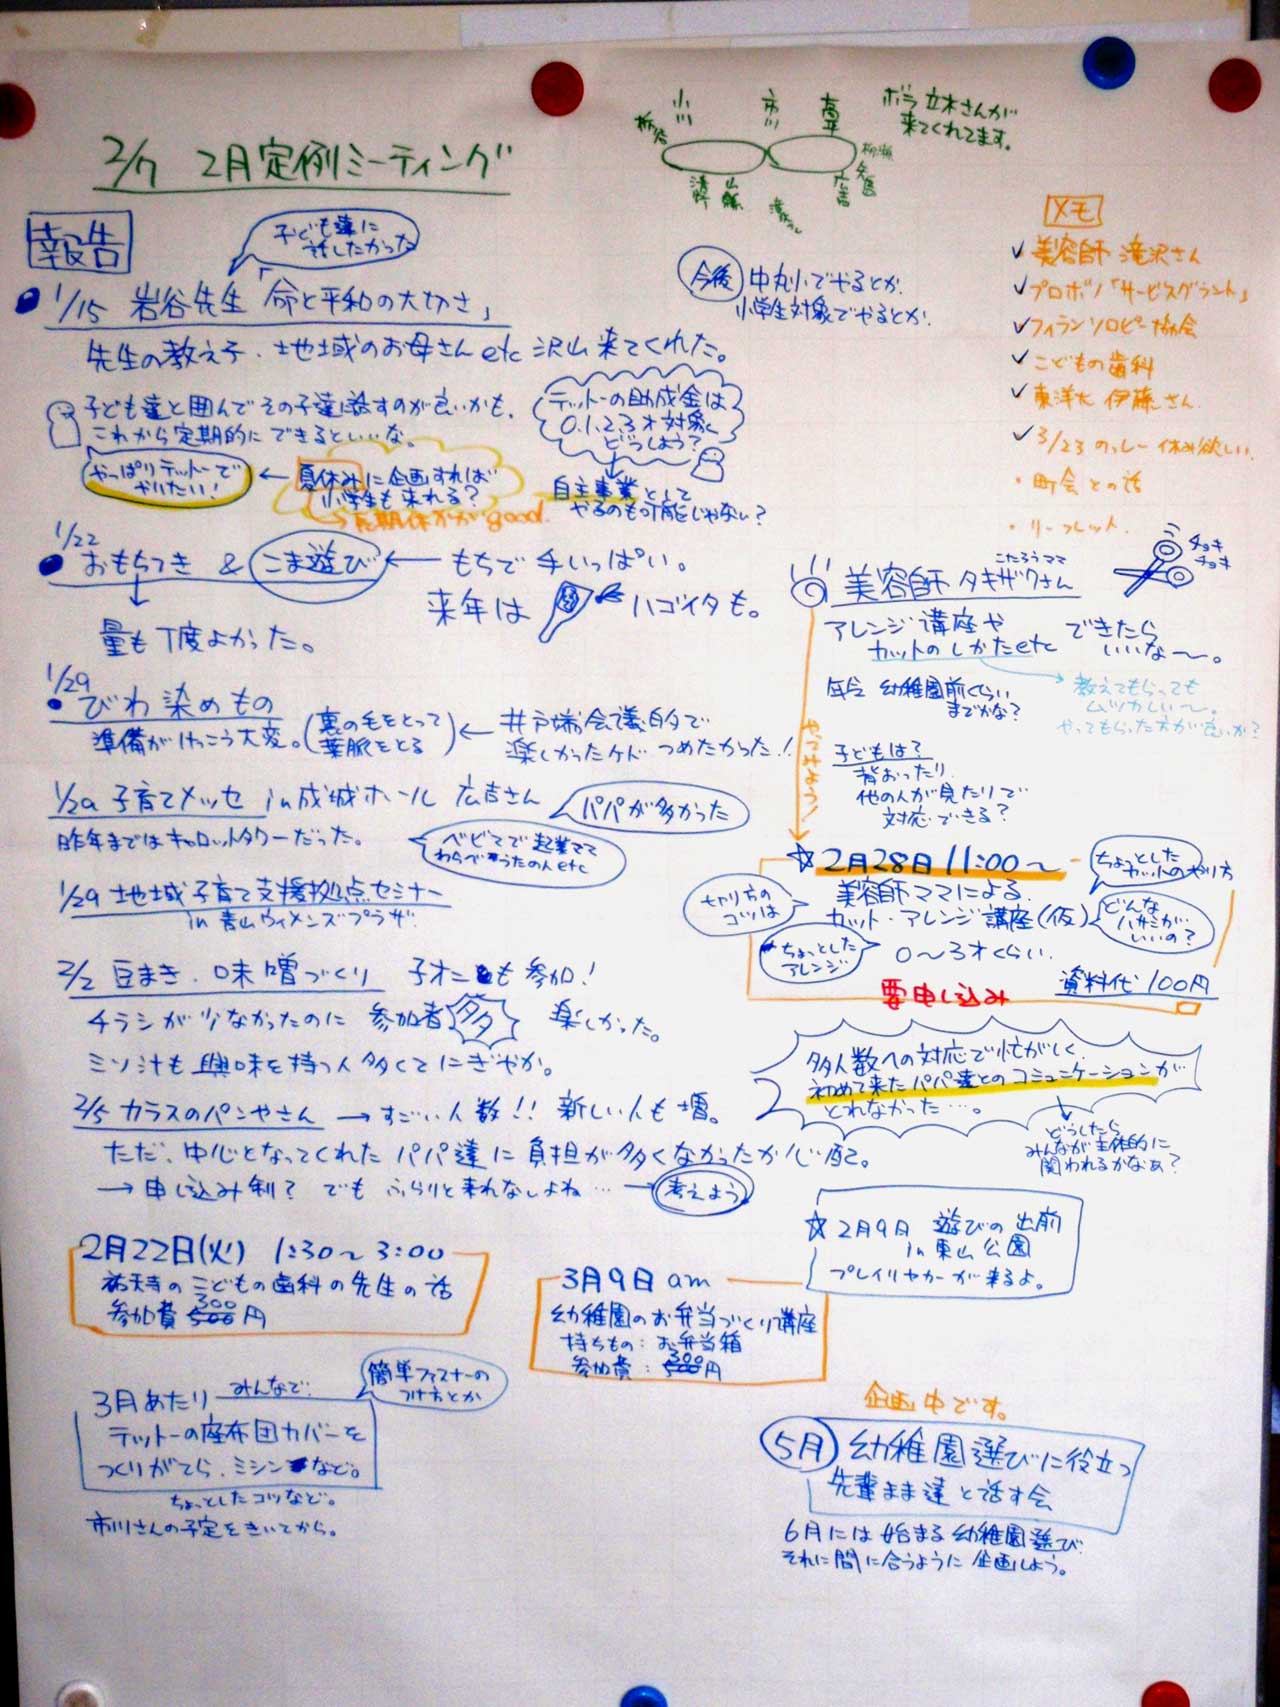 2/7 2月定例ミーティング
小川
市川
高平
栃谷
柳瀬
矢島
広吉
ボラ 立木さんが
来てくれてます。
報告
子ども達に
話したかった
1/15 岩谷先生「命と平和の大切さ」
先生の教え子、地域のお母さんetc 沢山来てくれた。
今後
中丸小でやるとか、
小学生対象でやるとか、
子ども達と囲んでその子達に話すのが良いかも。
これから定期的にできるといいな。
テットーの助成金は
0.1.2.3才対象
どうしよう?
自主事業として
やるのも可能じゃない?
夏休みに企画すれば
小学生も来れる?
長期休みがgood.
やっぱりテットーで
やりたい!
メモ
✓美容師 滝沢さん
✓プロボノ「サービスグラント」
✓フィランソロピー協会
✓こどもの歯科
✓東洋大 伊藤さん
✓3/23 のっしー休み欲しい
・町会との話
・リーフレット.
1/22
おもちつき & こま遊び ← もちで手いっぱい。
来年は ハゴイタも。
量も丁度よかった。
1/29
・びわ染めもの
準備がけっこう大変。(裏の毛をとって
葉脈をとる)
← 井戸端会議的で
楽しかったケド つめたかった!!
1/29 子育てメッセ in 成城ホール 広吉さん
パパが多かった
昨年まではキャロットタワーだった。
ベビマで起業ママ
わらべうたの人etc
1/29 地域子育て支援拠点セミナー
in 青山ウィメンズプラザ
2/2 豆まき、味噌づくり 子オニも参加!
チラシが少なかったのに 参加者多 楽しかった。
ミソ汁も興味を持つ人多くてにぎやか。
2/5 カラスのパンやさん → すごい人数!! 新しい人も増。
ただ、中心となってくれたパパ達に負担が多くなかったか心配。
→ 申し込み制? でもふらりと来れなしよね… → 考えよう
こたろうママ
美容師 タキザワさん
チョキ
チョキ
アレンジ講座や
カットのしかたetc できたら
いいな〜。
教えてもらっても
ムツカしい〜。
やってもらった方が良いか?
年令 幼稚園前くらい
までかな?
やってみよう!
子どもは?
背おったり、
他の人が見たりで
対応できる?
☆2月28日 11:00〜
美容師ママによる
カット・アレンジ講座(仮)
0〜3才くらい.
ちょっとした
カットのやり方
どんな
ハサミが
いいの?
コツは
ちょっとした
アレンジ
要申し込み
資料代 100円
多人数への対応で忙がしく、
初めて来たパパ達とのコミュニケーションが
とれなかった…。
どうしたら
みんなが主体的に
関われるかなぁ?
☆2月9日 遊びの出前
in 東山公園
プレイリヤカーが来るよ。
2月22日(火) 1:30〜3:00
祐天寺のこどもの歯科の先生の話
参加費 300円
3月9日 am
幼稚園のお弁当づくり講座
持ちもの: お弁当箱
参加費: 300円
3月あたり みんなで
簡単ファスナーの
つけ方とか
テットーの座布団カバーを
つくりがてら、ミシンなど。
ちょっとしたコツなど。
市川さんの予定をきいてから。
企画中です。
5月 幼稚園選びに役立つ
先輩まま達と話す会
6月には始まる幼稚園選び
それに間に合うように企画しよう。